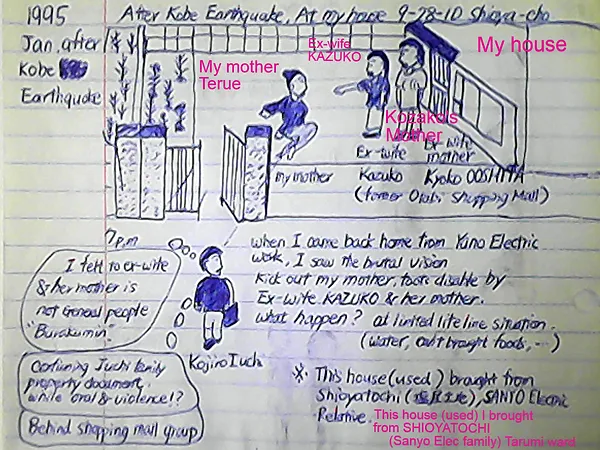 1995
Jan, after
Kobe
Earthquake
After Kobe Earthquake, At my house 9-28-10 Shioya-cho
Ex-wife
KAZUKO
My house
My mother
Terue
Kozako's
Mother
my mother
Ex-wife
Kazuko
Ex wife
mother
Kyoko OOSHITA
(former Otabi Shopping Mall)
7p.m
I felt to ex-wife
& her mother is
not General people
"Burakumin".
when I came back home from Yuno Electric
work, I saw the brutal vision
Kick out my mother, foots disable by
Ex-wife KAZUKO & her mother.
what happen? at limited life line situation.
(water, out brought foods, ...)
Kojiro Iuchi
Confirming Iuchi family
property document,
while oral & violence!?
Behind shopping mall group
※ This house (used) brought from
Shioyatochi ( ), SANYO Electric
Relative.
This house (used) I brought
from SHIOYATOCHI
(Sanyo Elec family) Tarumi ward